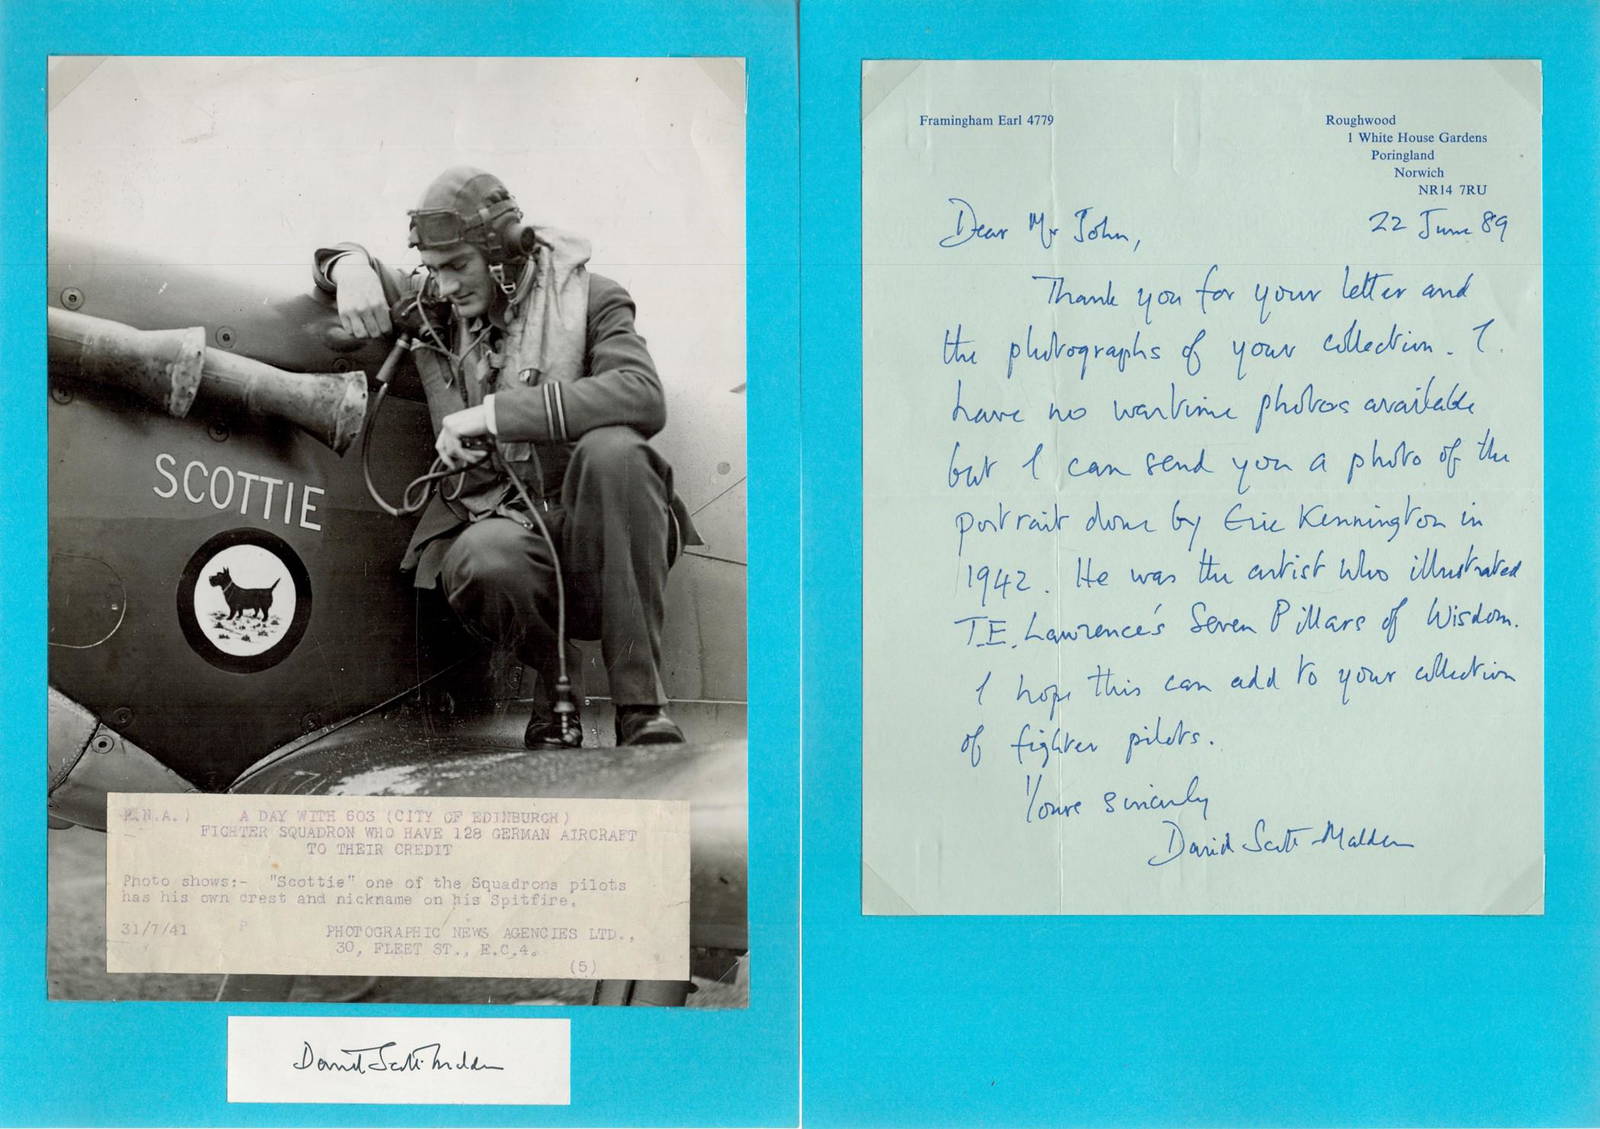 SCOTTIE
P.N.A.) A DAY WITH 603 (CITY OF EDINBURGH)
FIGHTER SQUADRON WHO HAVE 128 GERMAN AIRCRAFT
TO THEIR CREDIT
Photo shows:- "Scottie" one of the Squadrons pilots
has his own crest and nickname on his Spitfire.
31/7/41 P PHOTOGRAPHIC NEWS AGENCIES LTD.,
30, FLEET ST., E.C.4.
(5)
David Scott-Malden
Framingham Earl 4779
Roughwood
1 White House Gardens
Poringland
Norwich
NR14 7RU
22 June 89
Dear Mr John,
Thank you for your letter and
the photographs of your collection. I
have no wartime photos available
but I can send you a photo of the
portrait done by Eric Kennington in
1942. He was the artist who illustrated
T.E. Lawrence's Seven Pillars of Wisdom.
I hope this can add to your collection
of fighter pilots.
Yours sincerely
David Scott-Malden